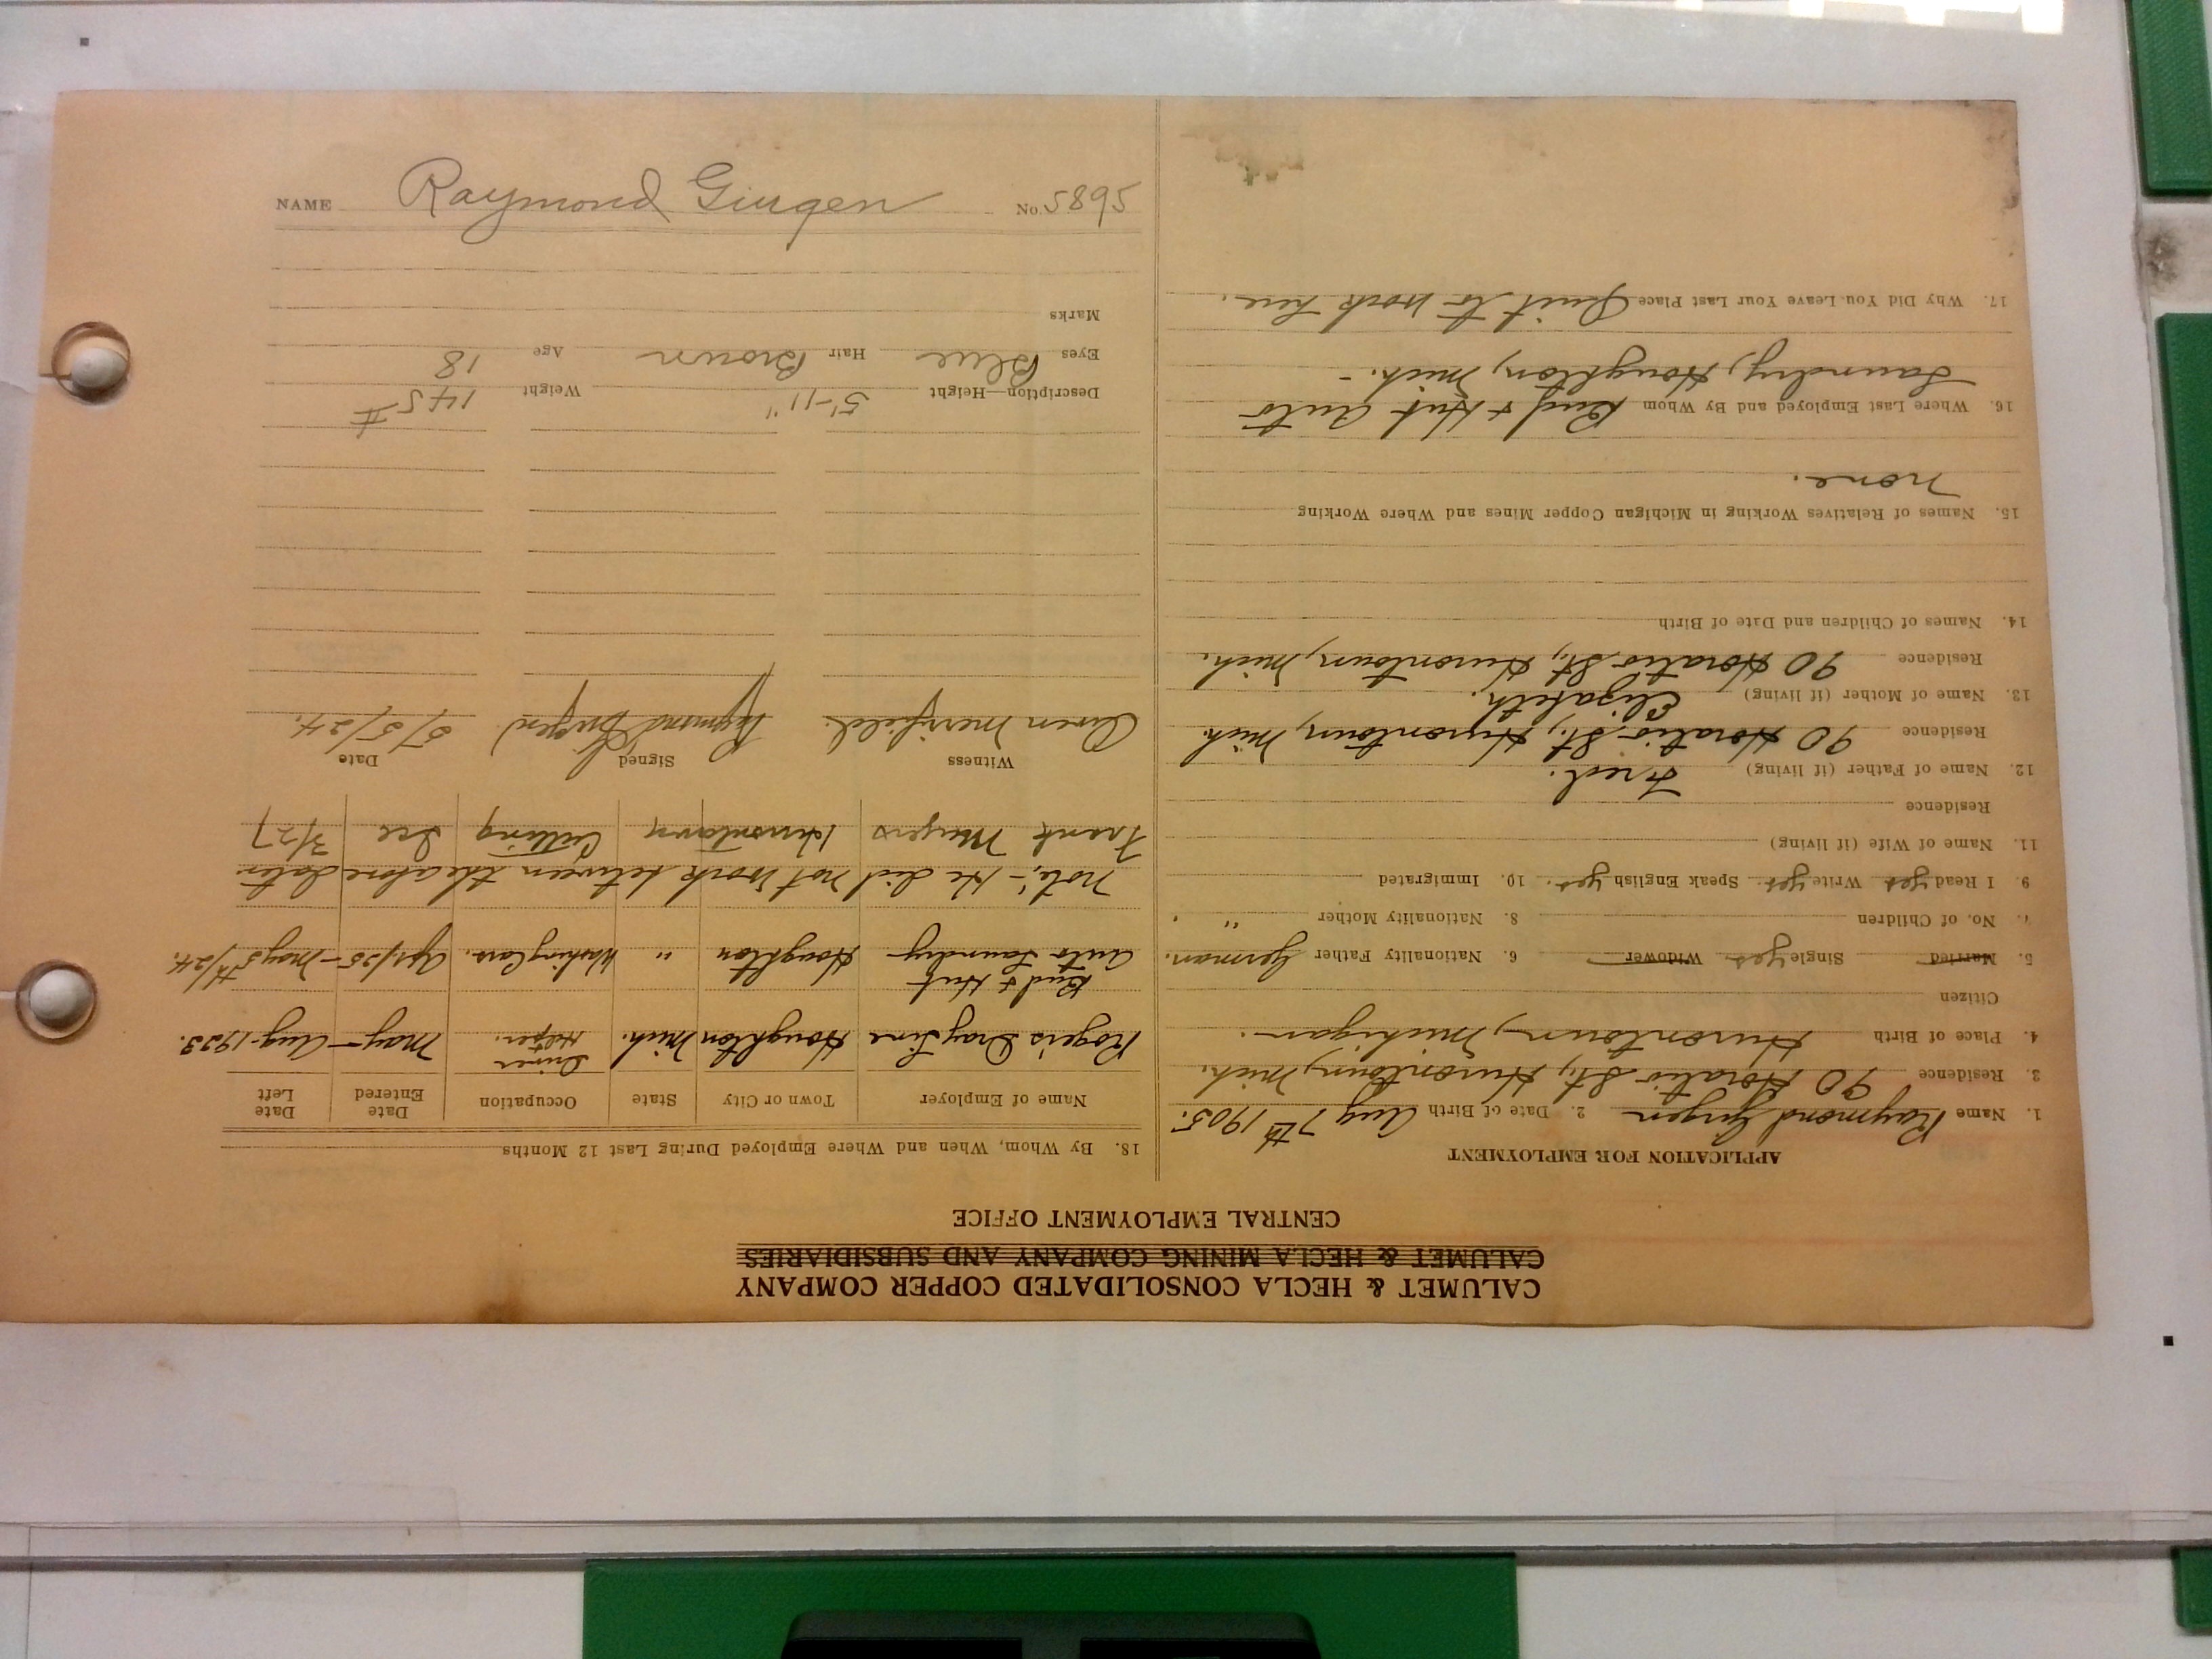 CALUMET & HECLA CONSOLIDATED COPPER COMPANY
CALUMET & HECLA MINING COMPANY AND SUBSIDIARIES
CENTRAL EMPLOYMENT OFFICE
APPLICATION FOR EMPLOYMENT
1. Name Raymond Giugen 2. Date of Birth Aug 7th 1905.
3. Residence 90 Horatio St., Hurontown, Mich.
4. Place of Birth Hurontown, Michigan.
Citizen
5. Married Single yes Widower 6. Nationality Father German.
7. No. of Children 8. Nationality Mother " .
9. I Read yes Write yes. Speak English yes. 10. Immigrated
11. Name of Wife (if living)
Residence
12. Name of Father (if living) Fred.
Residence 90 Horatio St., Hurontown, Mich.
13. Name of Mother (if living) Elizabeth.
Residence 90 Horatio St., Hurontown, Mich.
14. Names of Children and Date of Birth
15. Names of Relatives Working in Michigan Copper Mines and Where Working
None.
16. Where Last Employed and By Whom & Hut Auto
Laundry, Houghton, Mich. -
17. Why Did You Leave Your Last Place Quit to work here.
18. By Whom, When and Where Employed During Last 12 Months
Name of Employer Town or City State Occupation Date Entered Date Left
Driver
Rogers Dray Line Houghton Mich. Helper. May - Aug-1923.
& Hut
Auto Laundry Houghton " Washing Cars. Apl/25 - May 5th/24.
Note:- He did not work between the above dates
Frank Meyers Hurontown Cutting Ice 3/27
Witness Signed Date
Owen Merifield Raymond Giugen 5/5/24.
Description—Height 5'-11" Weight 145 #
Eyes Blue Hair Brown Age 18
Marks
NAME Raymond Giugen No. 5895